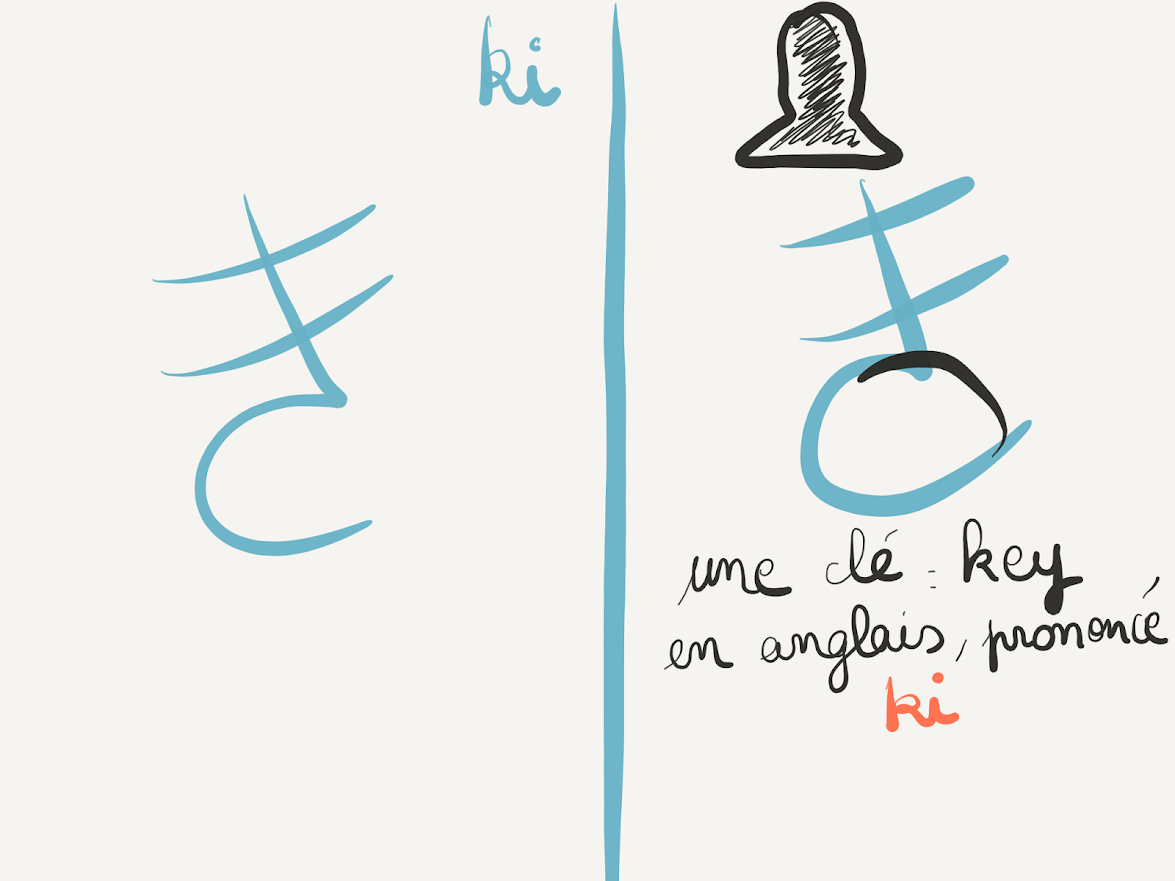 ki
き
き
une clé : key
en anglais, prononcé
ki